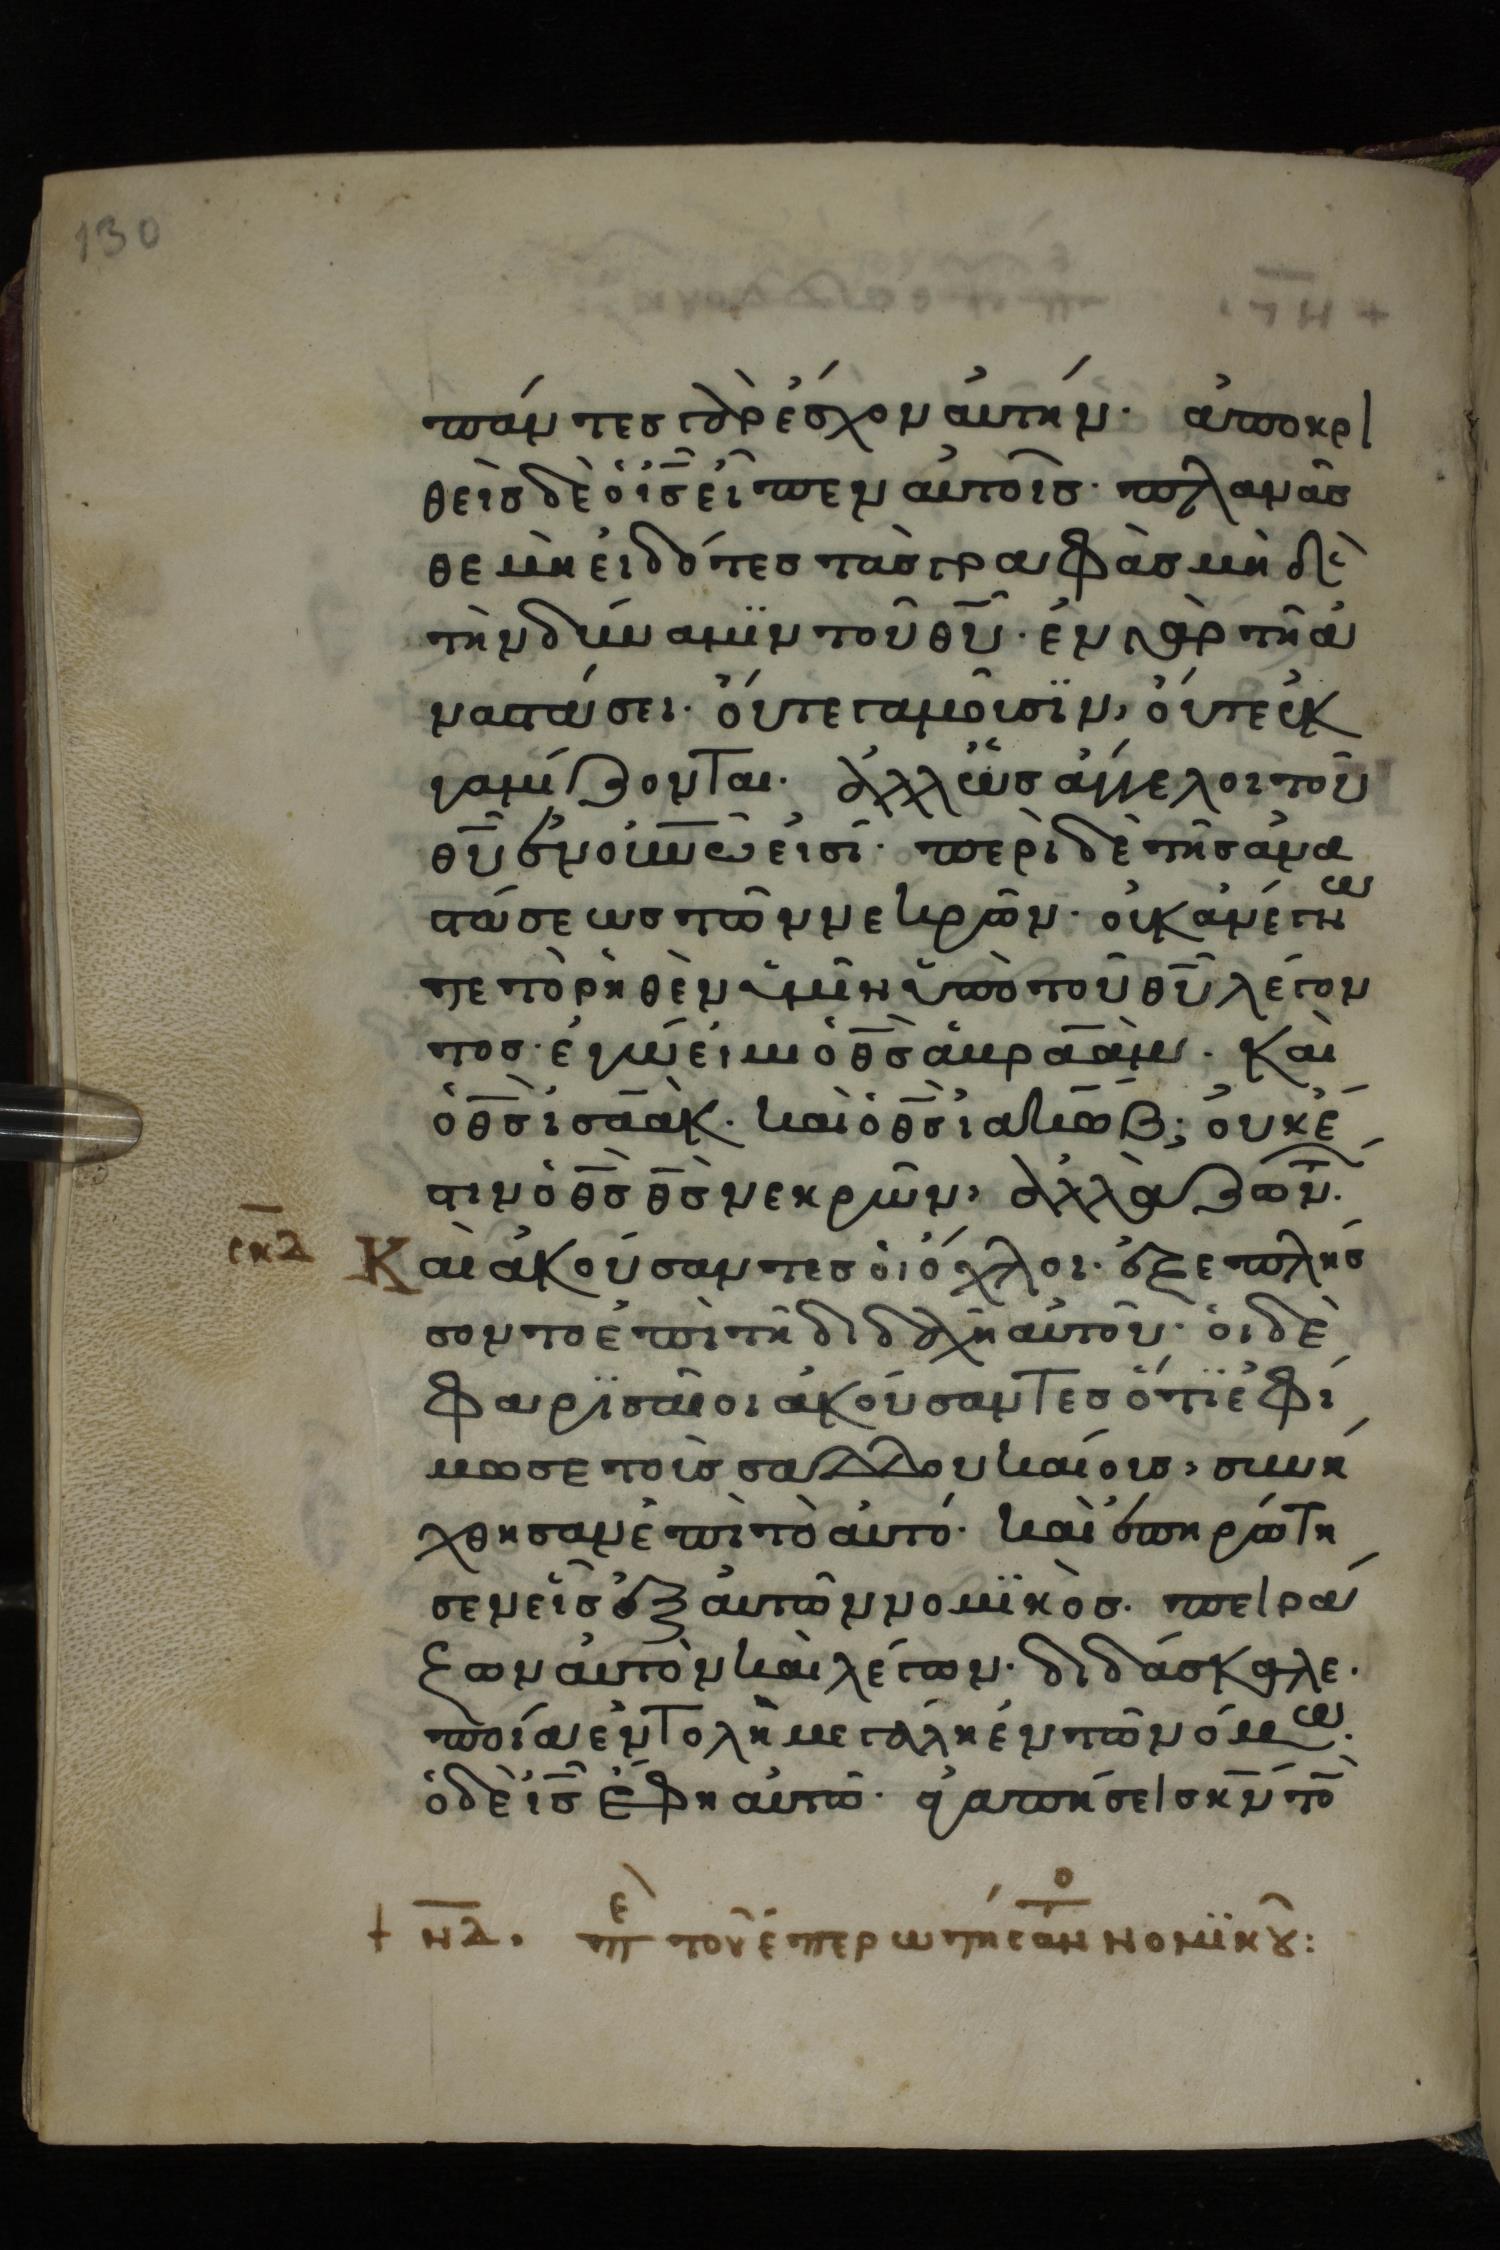 130
πάντες γὰρ ἔσχον αὐτήν· ἀποκρι
θεὶς δὲ ὁ ἰς εἶπεν αὐτοῖς· πλανᾶσ
θε μὴ εἰδότες τὰς γραφὰς μὴ δὲ
τὴν δύναμϊν τοῦ θυ· ἐν γὰρ τῆ ἀ
ναστάσει· οὔτε γαμοῦσϊν, οὔτε ἐκ
γαμίζονται· ἀλλ ὡς ἄγγελοι τοῦ
θυ ἐν οὐνω εἰσὶ· περὶ δὲ τῆς ἀνα
στάσεως τῶν νεκρῶν· οὐκ ἀνέγνω
τε τὸ ῥηθὲν ὑμῖν ὑπὸ τοῦ θυ λέγον
τος· ἐγώ εἰμι ὁ θς ἀβραὰμ· καὶ
ὁ θς ἰσαὰκ· καὶ ὁ θς ἰακώβ; οὐκ ἔ
στιν ὁ θς θς νεκρῶν, ἀλλὰ ζώντων·
σκδ Καὶ ἀκούσαντες οἱ ὄχλοι· ἐξεπλήσ
σοντο ἐπὶ τῆ διδαχῆ αὐτοῦ· οἱ δὲ
φαρϊσαῖοι ἀκούσαντες ὅτϊ ἐφί
μωσε τοὺς σαδδουκαίους, συνή
χθησαν ἐπὶ τὸ αὐτό· καὶ ἐπηρώτη
σεν εἷς ἐξ αὐτῶν νομϊκὸς· πειρά
ζων αὐτὸν καὶ λέγων· διδάσκαλε·
ποία ἐντολὴ μεγάλη ἐν τῶ νόμω·
ὁ δὲ ἰς ἔφη αὐτῶ· ἀγαπήσεις κν τὸν
+ νδ. πε τοῦ ἐπερωτήσαντο νομϊκοῦ: